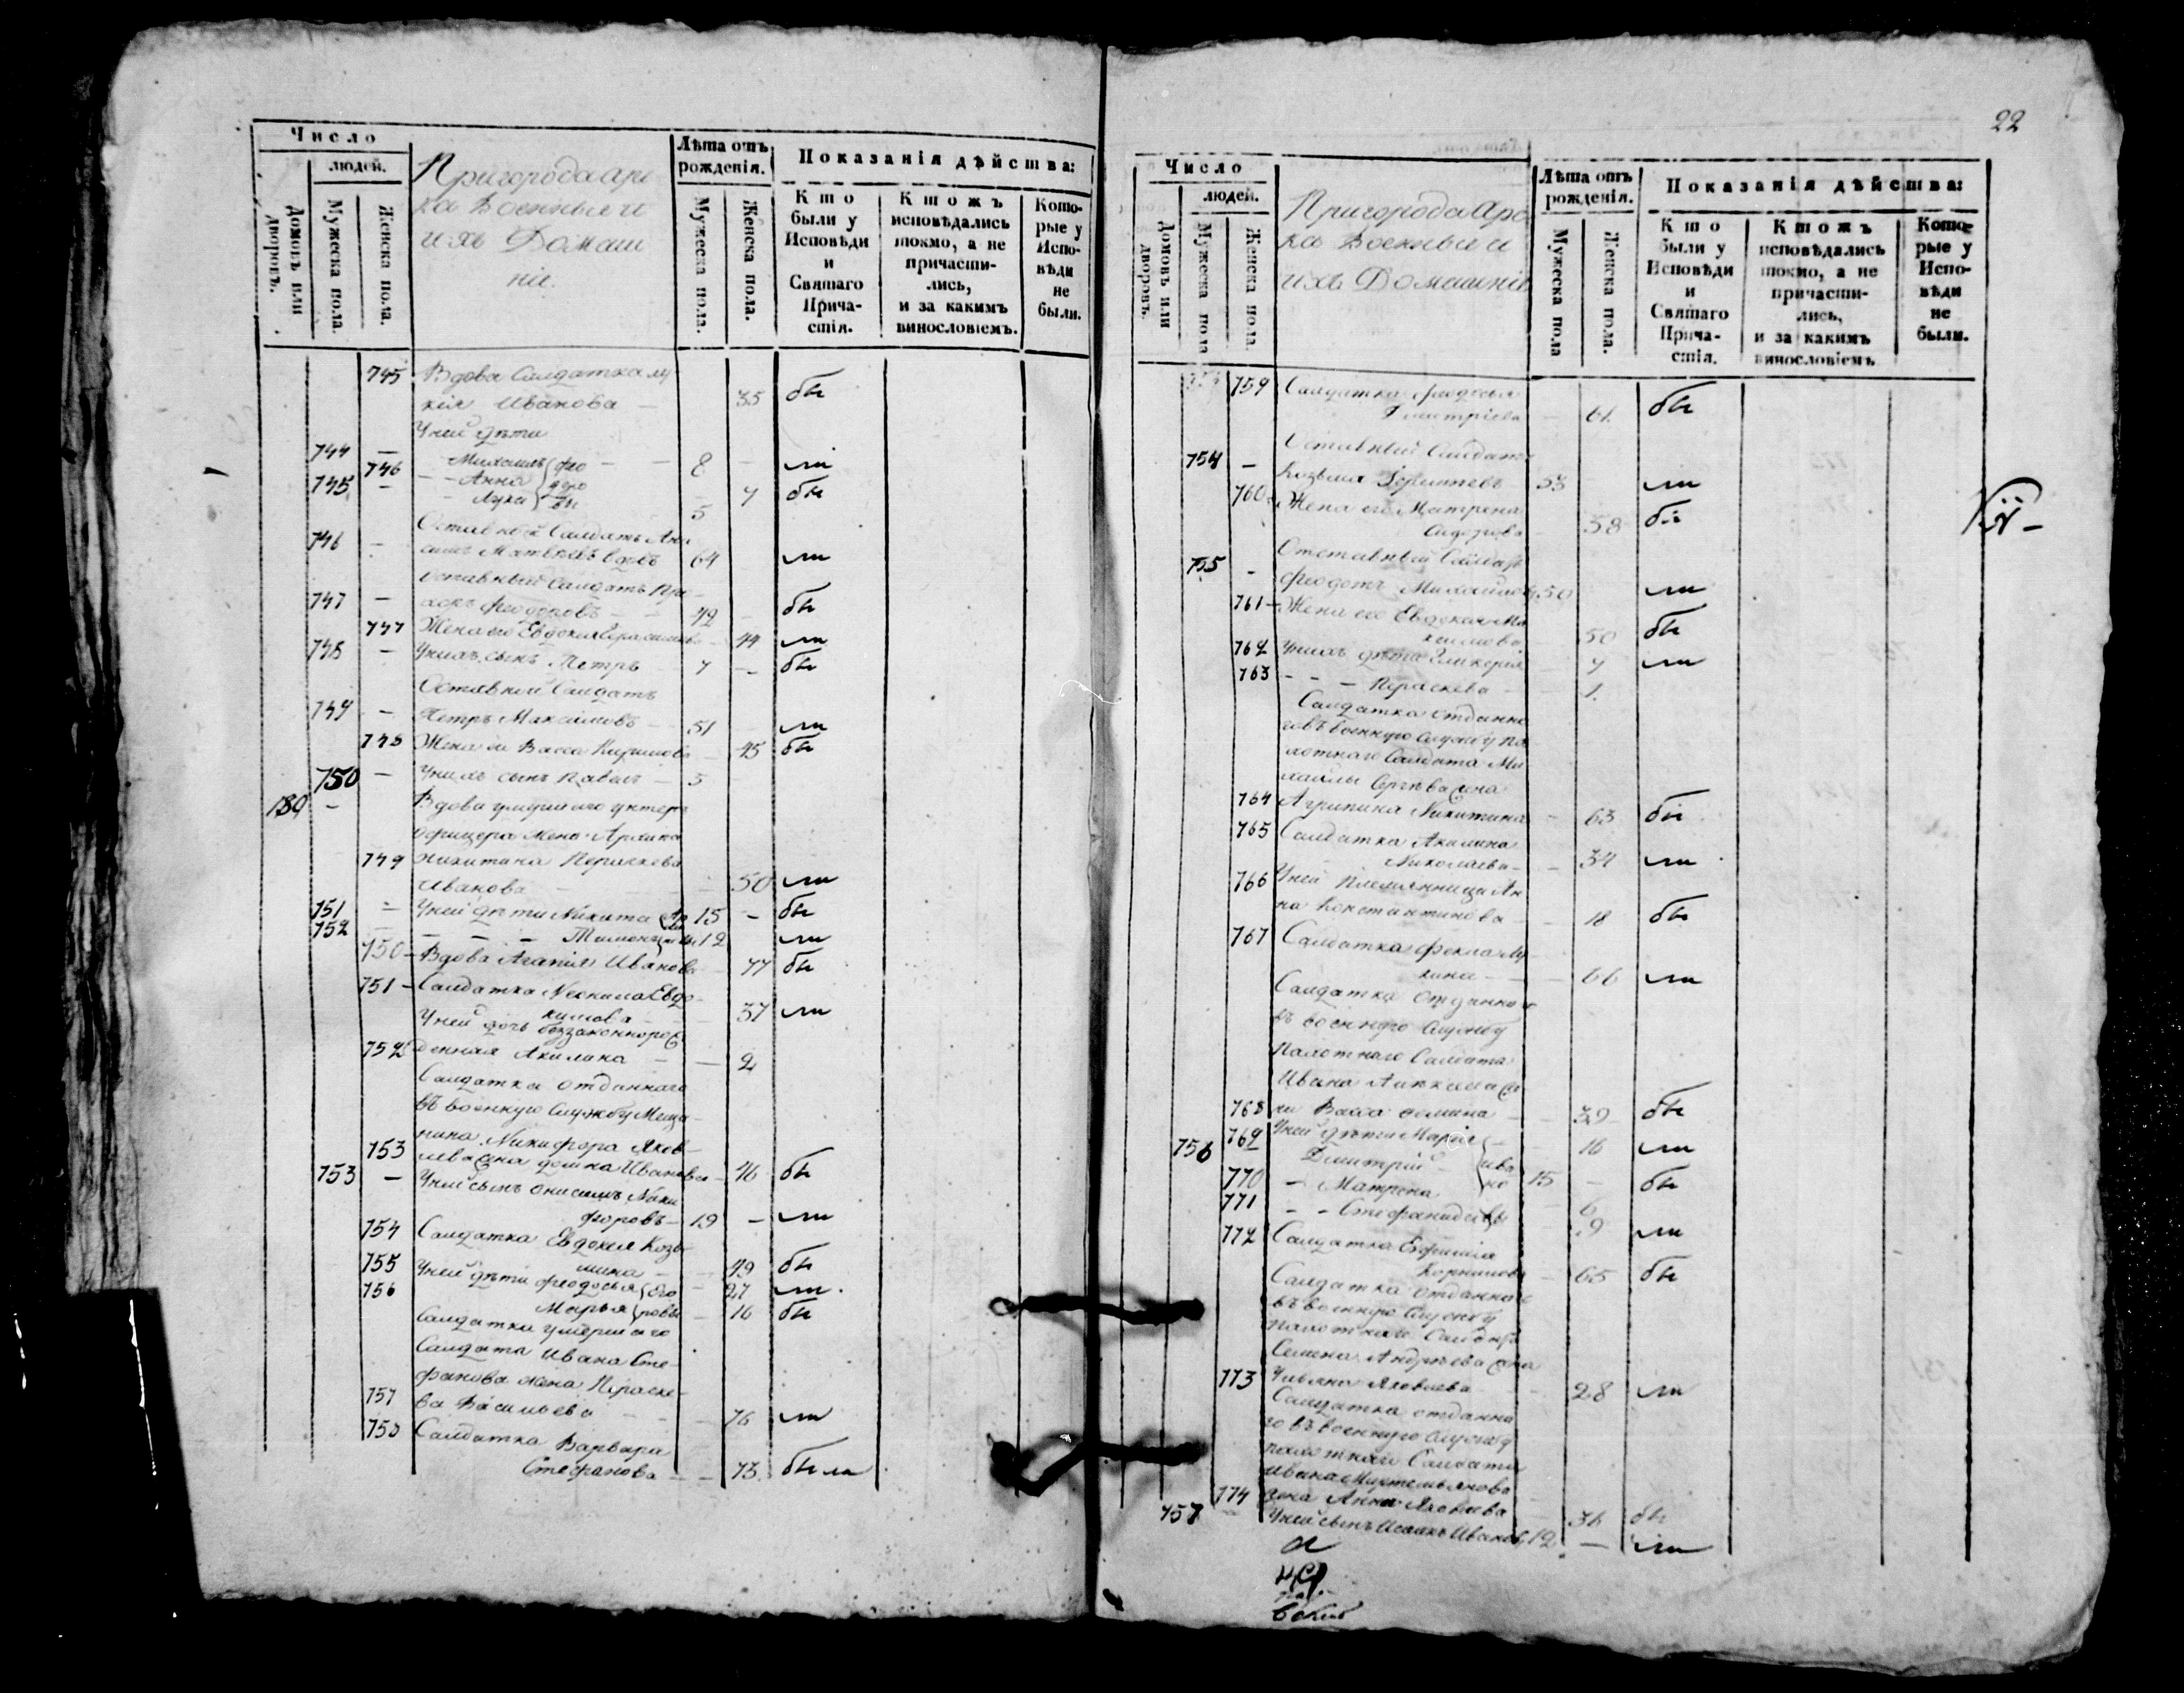 Число
людей.
Домовъ или дворовъ.
Мужеска пола.
Женска пола.
Пригорода Арс
ка Военныя и
ихъ Домаш
нiе.
Лѣта отъ рожденiя.
Мужеска пола.
Женска пола.
Показанiя дѣйства:
Кто были у Исповѣди и Святаго Прича- стiя.
Ктожъ исповѣдались токмо, а не причасти- лись, и за какимъ винословiемъ.
Кото- рые у Испо- вѣди не были.
745 Вдова Салдатка Лу
кiя Иванова — 35 бы
У ней дѣти
744 — Михаилъ 8 — ли
746 — Анна 7 бы
745 — Лука 5
Оставный Салдатъ Ани
746 — симъ Матвѣевъ вдовъ 64 ли
Оставный Салдатъ Про
747 — хоръ Феодоровъ — 42 — бы
747 Жена его Евдокия Герасимова — 44 ли
748 — У нихъ сынъ Петръ 7 — бы
Оставный Салдатъ
749 — Петръ Максимовъ — 51 ли
748 Жена ег Васса Кирилова — 45 бы
750 — У нихъ сынъ Павелъ — 5
180 — Вдова умершаго унтеръ
офицера
749 Никитина Параскева
Иванова — 50 ли
751 — У ней дѣти Никита 15 — бы
752 — Тимоней 12 ли
750 — Вдова Агапiя Иванова 77 бы
751 — Салдатка Неонила Евдо-
кимова — 37 ли
У ней дочь беззаконнорож
752 денная Акилина — — 2
Салдатка отданнаго
въ военную службу Меща-
нина Никифора Яков-
753 лева жена Домна Иванова — 46 бы
753 — У ней сынъ Онисимъ Ники
форовъ — 19 — ли
754 Салдатка Евдокия Козь
мина — 49 бы
755 У ней дѣти Феодосья — 27 ли
756 Марья — 16 бы
Салдатка умершаго
Салдата Ивана Сте-
фанова жена Параске-
757 ва Васильева — — 76 ли
758 Салдатка Варвара
Стефанова — — 73 были
22
Число
людей.
Домовъ или дворовъ.
Мужеска пола
Женска пола.
Пригорода Арс
ка Военныя и
ихъ Домашнiе
Лѣта отъ рожденiя.
Мужеска пола
Женска пола.
Показанiя дѣйства:
Кто были у Исповѣди и Святаго Прича- стiя.
Ктожъ исповѣдались токмо, а не причасти- лись, и за какимъ винословiемъ
Кото- рые у Испо- вѣди не были.
759 Салдатка Феодосья
Димитрiева — 61 бы
Оставный Салдатъ
754 — Козьма 53 ли
760 Жена его Матрена
Сидорова 58 бы
Отставный Салдатъ
755 — Феодотъ Михайловъ 50 ли
761 — Жена его Евдокия Ма
ксимова 50 бы
762 У нихъ дѣти Гликерия 7 ли
763 — — — Параскева — 1
Салдатка отданна
го въ военную службу па
хотнаго Салдата Ми
хайлы Сергѣева жена
764 Агрипина Никитина — 63 бы
765 Салдатка Акилина
Николаева — 34 ли
766 У ней племянница Ан
на Константинова — 18 бы
767 Салдатка Фекла Лу
кина — — 66 ли
Салдатка отданнаго
въ военную службу
Пахотнаго Салдата
Ивана
768 Васса Фомина — 39 бы
769 У ней дѣти Марiя — 16 ли
756 Димитрiй 15 — бы
770 — Матрена 6
771 — — Стефанида 9 ли
772 Салдатка Евфимiя
Корнилова — 65 бы
Салдатка отданнаго
въ военную службу
пахотнаго Салдата
Семена Андрѣева жена
773 Ульяна Яковлева 28 ли
Салдатка отданна
го въ военную службу
пахотнаго Салдата
Ивана
774 жена Анна Яковлева — 36 бы
757 — У ней сынъ Исаакъ Ивановъ 12 — ли